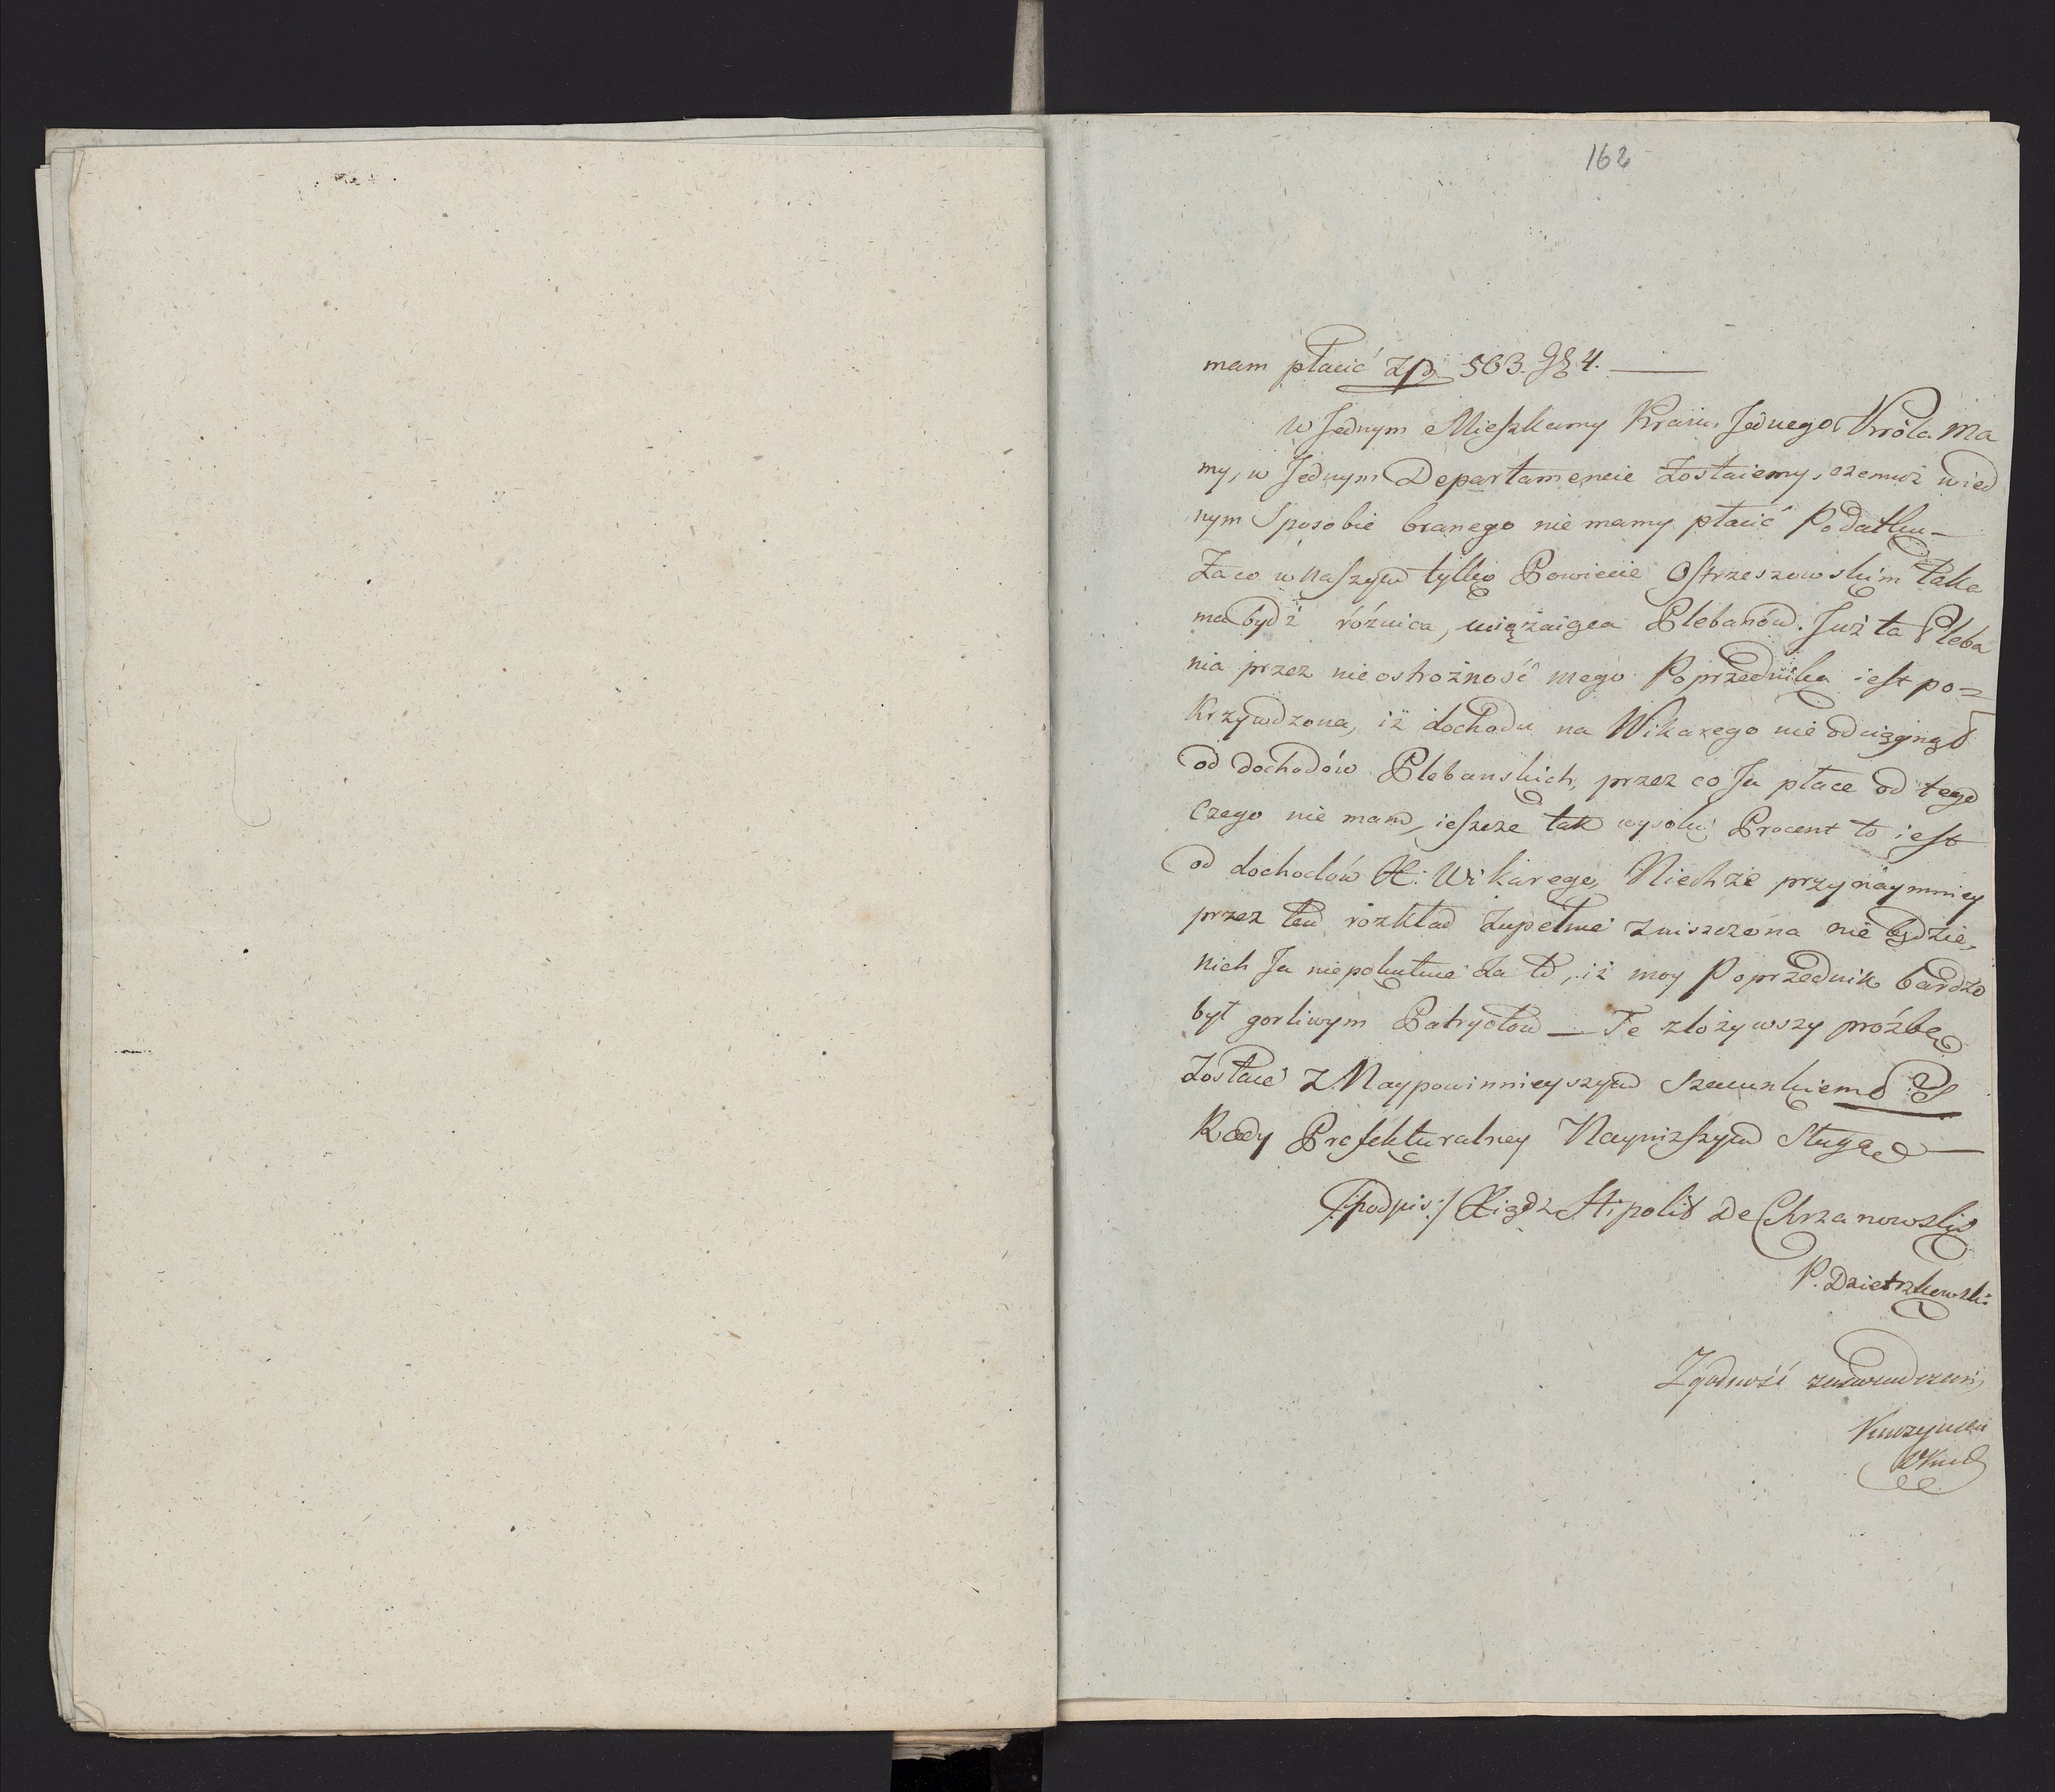 162
mam płacić Zp. 503. gg 4. —
W Jednym Mieszkamy Kraiu, Jednego Króla ma
my, w Jednym Departamencie Zostaiemy, czemuż wied
nym Sposobie branego nie mamy płacić Podatku —
Za co w naszym tylko Powiecie Ostrzeszowskim taka
ma bydź różnica, uciążaiąca Plebanów. Już ta Pleba
nia przez nieostrożność mego Poprzednika iest po=
krzywdzona, iż dochodu na Wikarego nie odciągnął
od dochodów Plebanskich, przez co Ja płace od tego
czego nie mam, ieszcze tak wysoki Procent to iest
od dochodów X. Wikarego, Niechże przynaymniey
przez ten rozkład zupełnie zniszczona nie będzie,
niech Ja niepokutuie za to, iż moy Poprzednik bardzo
był gorliwym Patryotom — Te złożywszy próźbę
Zostaie z Naypowinnieyszym szacunkiem
Rady Prefekturalney Nayniższym Sługą —
/:podpis:/ Xiądz Hipolit De Chrzanowski
P. Dzietrzkowski
Zgodność zaświadczam